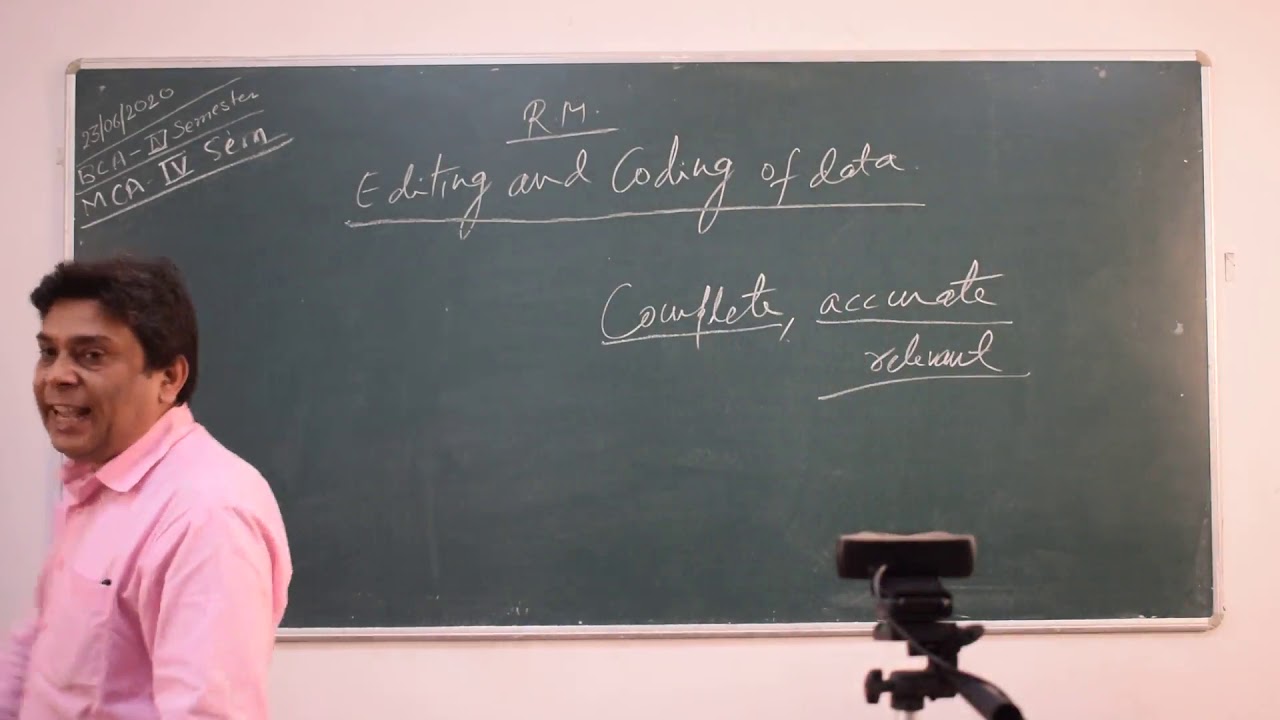 23/06/2020
BCA - IV Semester
MCA - IV Sem
R.M.
Editing and Coding of data.
Complete, accurate
relevant